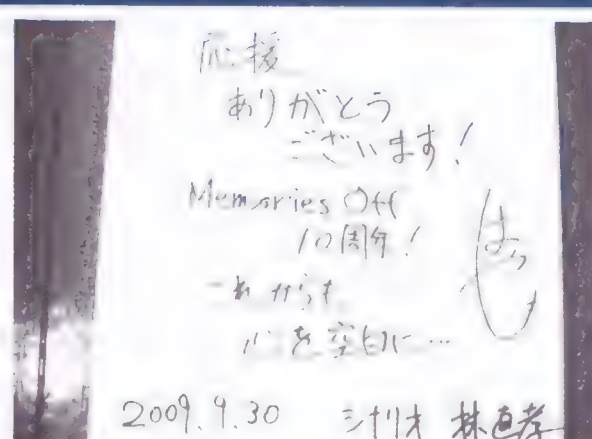 応援
ありがとう
ございます！
Memories Off
10周年！
これからも
心を空色に…
2009.9.30 シナリオ 林直孝